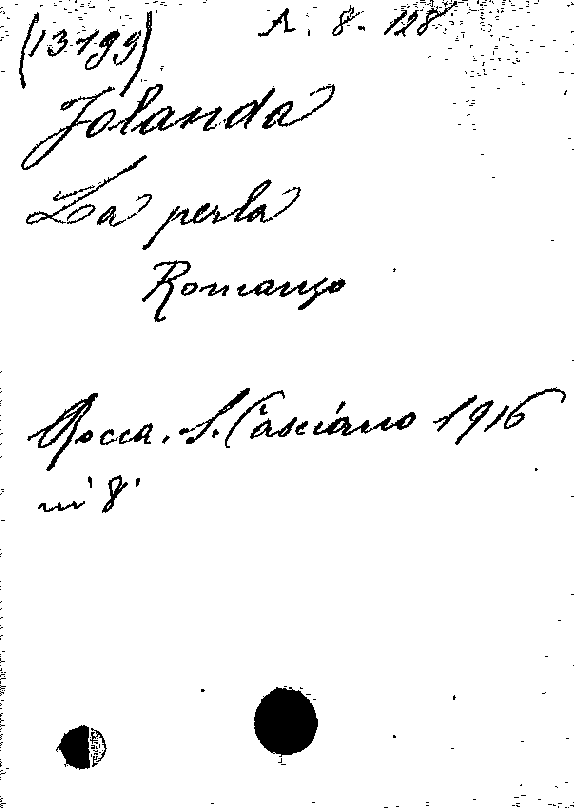 (13199) A. 8. 128
Jolanda
La perla
Romanzo
Rocca. S. Casciano 1916
in 8°